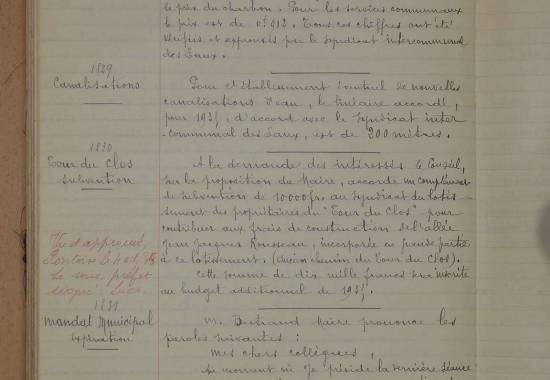 le prix du charbon. Pour les services communaux
le prix est de 0f912. Tous ces chiffres ont été
vérifiés et approuvés par le Syndicat intercommunal
des Eaux.
1829
Canalisations
Pour l'établissement éventuel de nouvelles
canalisations d'eau, le linéaire accordé,
pour 1935, d'accord avec le Syndicat inter-
communal des Eaux, est de 200 mètres.
1830
Tour du Clos
Subvention
A la demande des intéressés le Conseil,
sur la proposition du Maire, accorde un complément
de subvention de 10000 frs au Syndicat du lotis-
sement des propriétaires du "Tour du Clos" pour
contribuer aux frais de construction de l'allée
Jean Jacques Rousseau, incorporée en grande partie
à ce lotissement. (Ancien chemin du Tour du Clos).
Cette somme de dix mille francs sera inscrite
au budget additionnel de 1935.
Vu et approuvé,
Pontoise le
Le sous préfet
signé:
1831
Mandat Municipal
expiration
M. Bertrand Maire prononce les
paroles suivantes :
Mes chers collègues,
Au moment où je préside la dernière séance